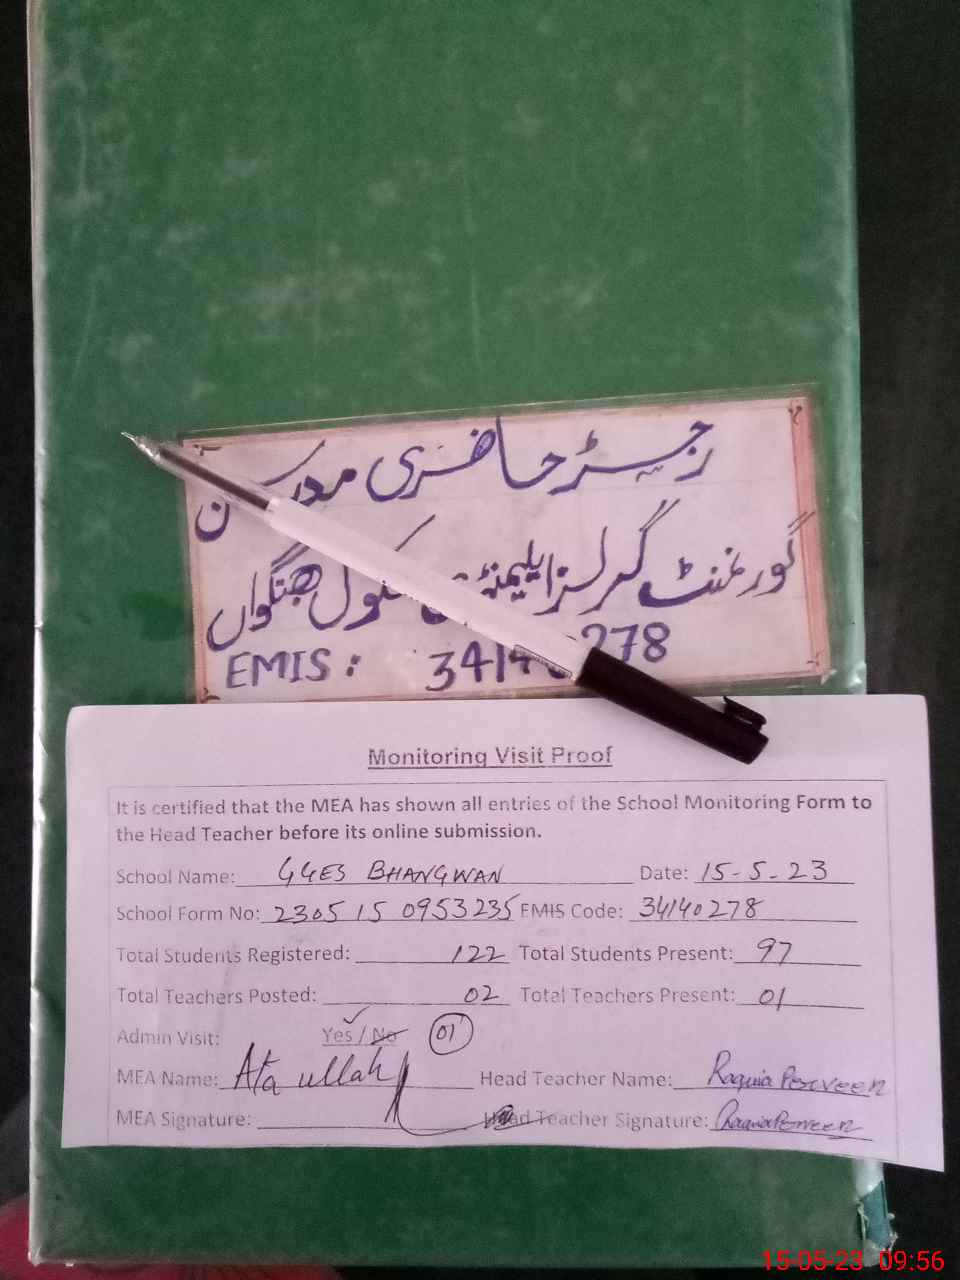 رجسٹر حاضری مدرسین
گورنمنٹ گرلز ایلیمنٹری سکول بھنگواں
EMIS: 34140278
Monitoring Visit Proof
It is certified that the MEA has shown all entries of the School Monitoring Form to
the Head Teacher before its online submission.
School Name: GGES BHANGWAN Date: 15-5-23
School Form No: 2305 15 0953235 EMIS Code: 34140278
Total Students Registered: 122 Total Students Present: 97
Total Teachers Posted: 02 Total Teachers Present: 01
Admin Visit: Yes / No 01
MEA Name: Ata ullah Head Teacher Name: Raquia Perveen
MEA Signature: Head Teacher Signature: Raquia Perveen
15-05-23 09:56